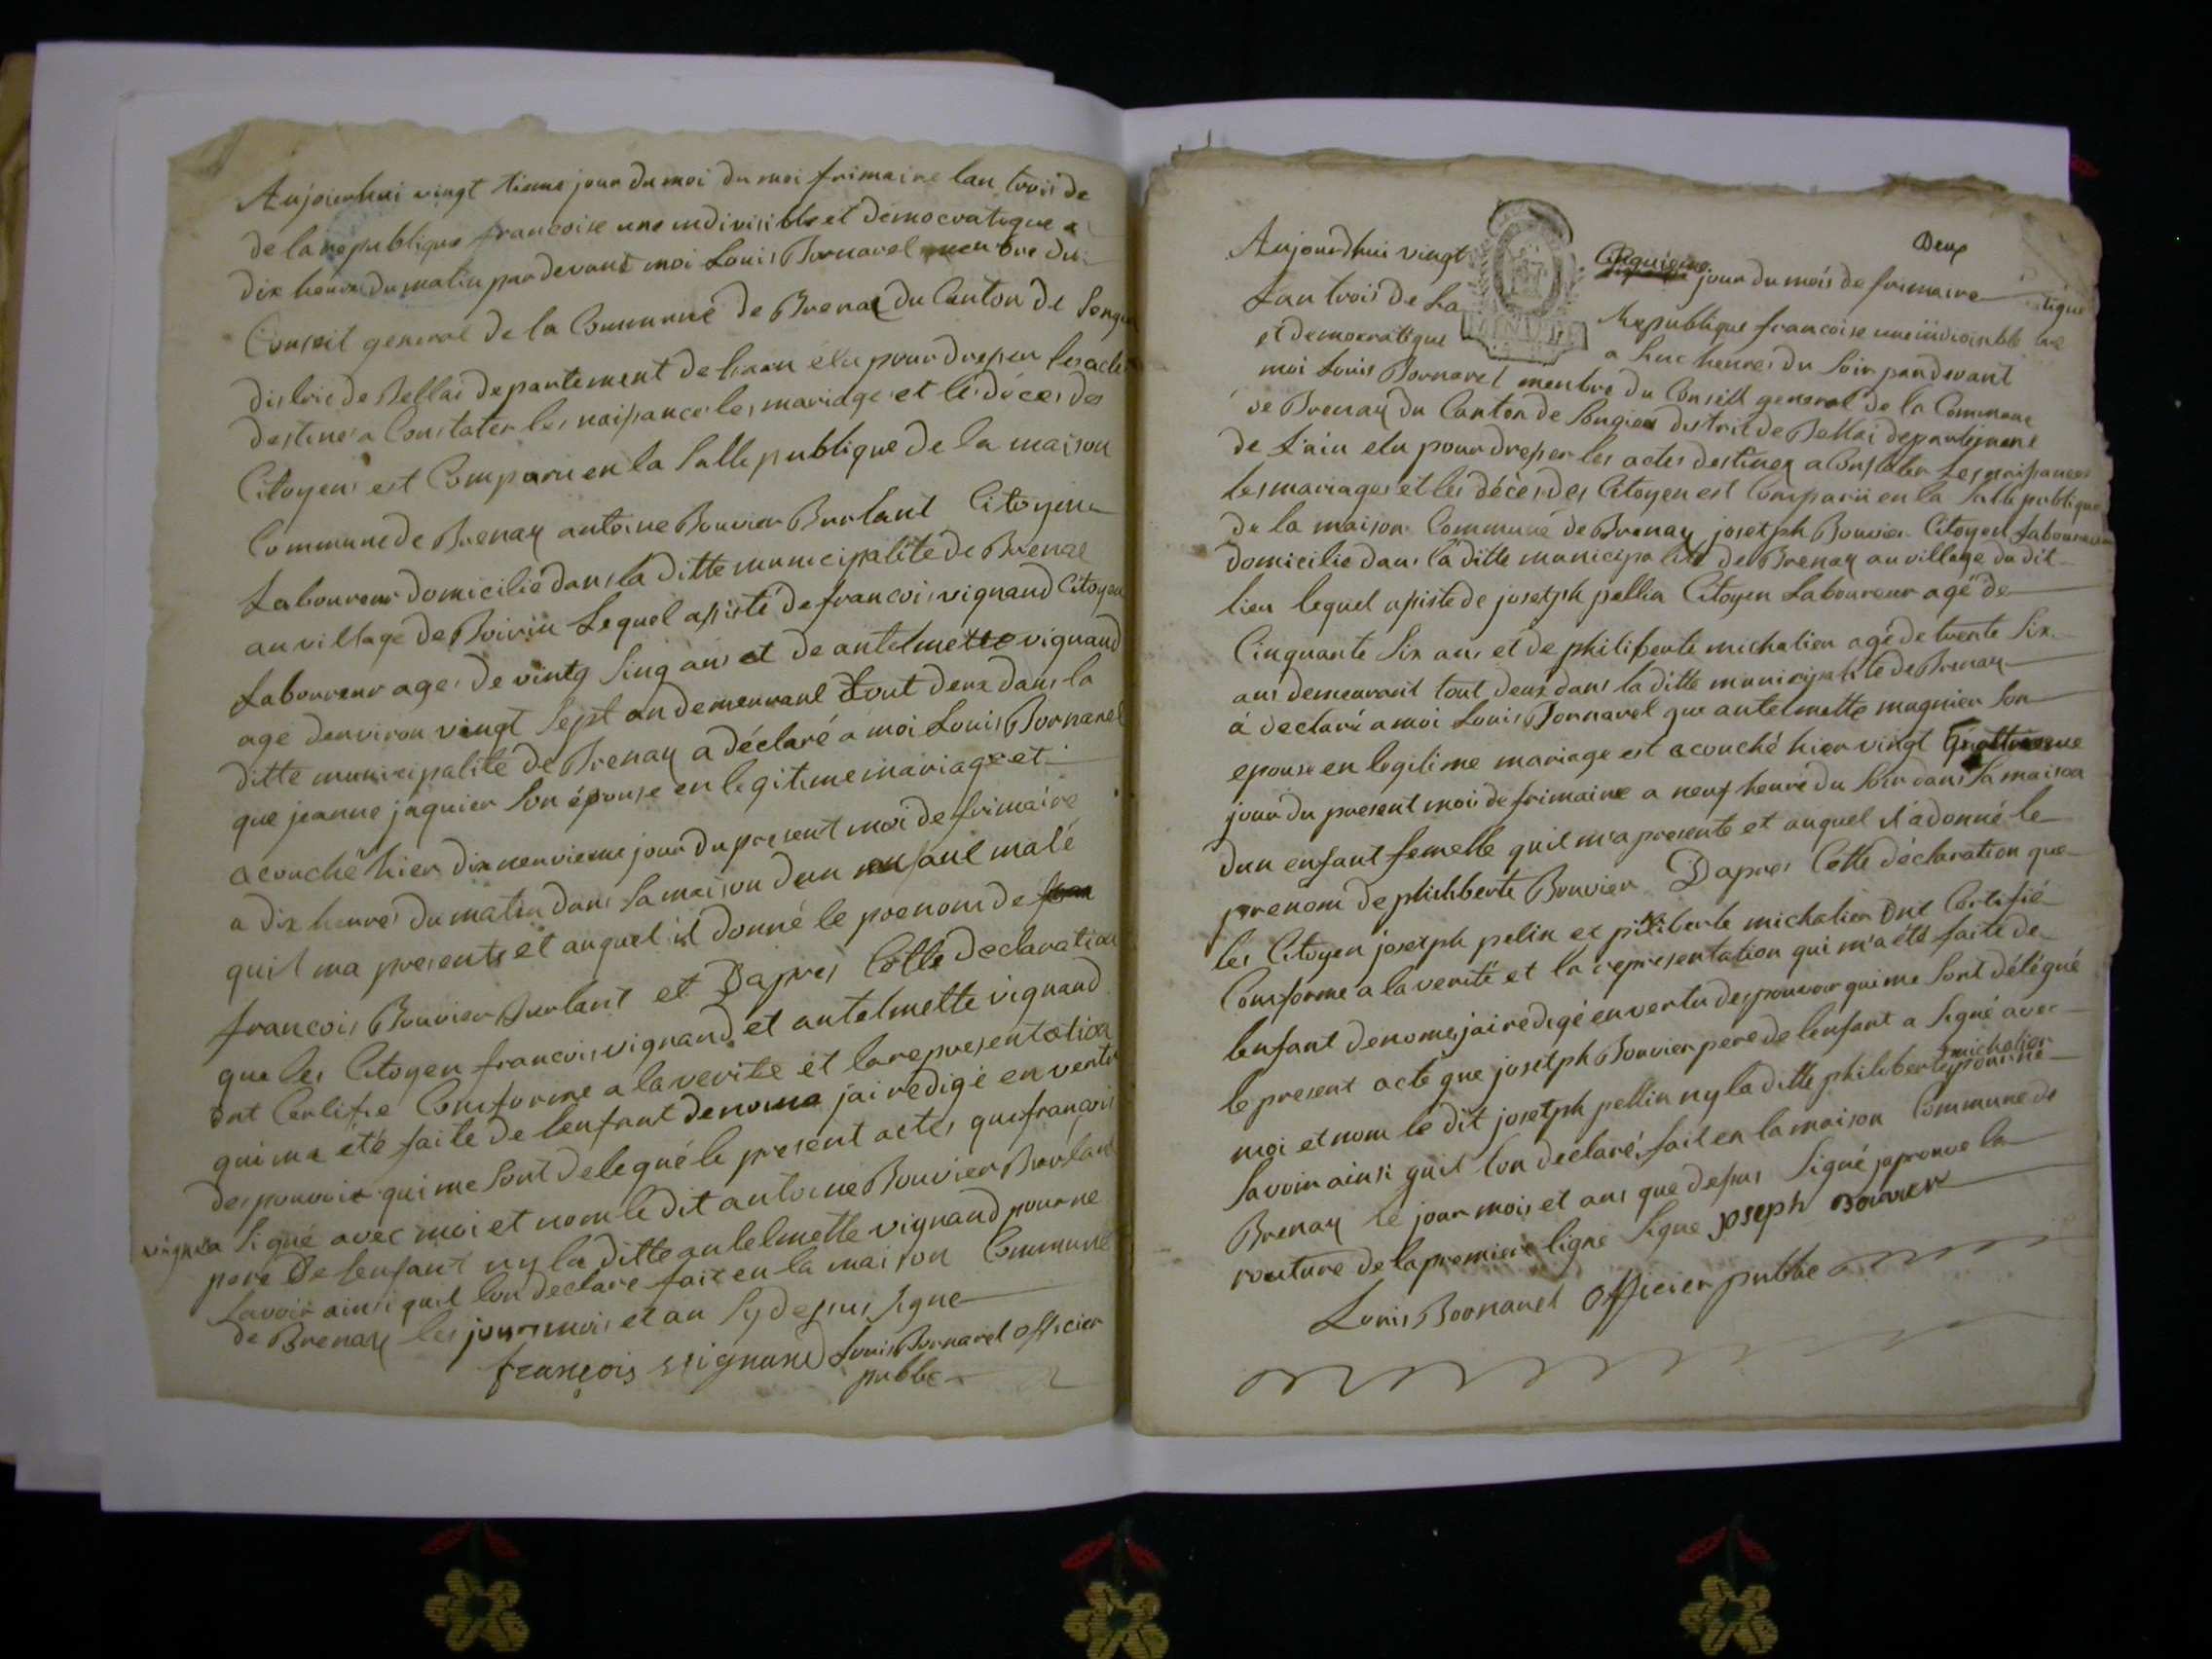 Aujouerhui vingt tieme jour du moi du moi frimaire lan trois de
de la republique francoise une indivisible et démocratique a
dix heures du matin par devant moi Louis Bornarel menbre du
Conseil general de la Commune de Brenaz du Canton de Songieu
distric de Bellai departement de linan élu pour dresser les actes
destinés a Constater les naissances les mariages et lé décés des
Citoyens est Comparu en la Salle publique de la maison
Commune de Brenaz antoine Bouvier Burlant Citoyen
Laboureur domicilié dans la ditte municipalité de Brenaz
au village de Boirin Lequel assisté de francois vignand Citoyen
Laboureur ages de vintg Sing ans et de antelmette vignand
agé denviron vingt Sept an demeurant tout deux dans la
ditte municipalité de Brenaz a déclaré a moi Louis Bornarel
que jeanne jaquier Son épouse en legitime mariage et
acouché hier dix neuvieme jour du present moi de frimaire
a dix heures du matin dans sa maison dun enfant malé
quil ma presente et auquel il donné le prenom de
francois Bouvier Burlant et Dapres Cette declaration
que les Citoyen francois vignand et antelmette vignand
ont Certifie Conforme a la verite et la representation
qui ma été faite de lenfant denomé jai redigé en vertu
des pouvoir qui me Sont delegué le present actes que francois
vignand Signé avec moi et nom le dit antoine Bouvier Burland
pere de lenfant ny la ditte antelmette vignand pour ne
Savoir ainsi quil lon declare fait en la maison Commune
de Brenaz les jour mois et an Sy dessus Signe
françois vignand Louis Bornarel officier
pubbc
Deux
Aujourdhui vingt Cinquieme jour du mois de frimaire
Lan trois de La Republique francoise une indivisible
et democratique a huc heures du Soir par devant
moi Louis Bornarel menbre du Conseil general de la Commune
de Brenaz du Canton de Songieu district de Bellai departement
de Lain elu pour dresser les actes destinez a Constater Les naissances
les mariages et les décés des Citoyen est Comparu en la Salle publique
de la maison Commune de Brenaz josetph Bouvier Citoyen Laboureur
domicilie dans la ditte municipalité de Brenaz au village du dit
lieu lequel assiste de josetph pellin Citoyen Laboureur agé de
Cinquante Six ans et de philiberte michalier agé de trente Six
ans demeurant tout deux dans la ditte municipalité de Brenaz
à declaré a moi Louis Bornarel que antelmette magnier Son
epouse en legitime mariage est acouché hier vingt quattrieme
jour du present mois de frimaire a neuf heure du Soir dans Sa maison
dun enfant femelle quil m'a presente et auquel il a donné le
prenom de philiberte Bouvier Dapres Cette déclaration que
les Citoyen josetph pelin et piliberte michalier ont Certifié
Conforme a la verité et la representation qui m'a été faite de
lenfant denomé, jai redigé en vertu des pouvoir qui me Sont délégué
le present acte que josetph Bouvier pere de lenfant a Signé avec
moi et nom le dit josetph pellin ny la ditte philiberte michalier pour ne
Savoir ainsi quil lon declaré, fait en la maison Commune de
Brenaz le jour mois et ans que dessus Signé japrouve la
routure de la premiere ligne Signe joseph Bouvier
Louis Bornarel officier pubbc